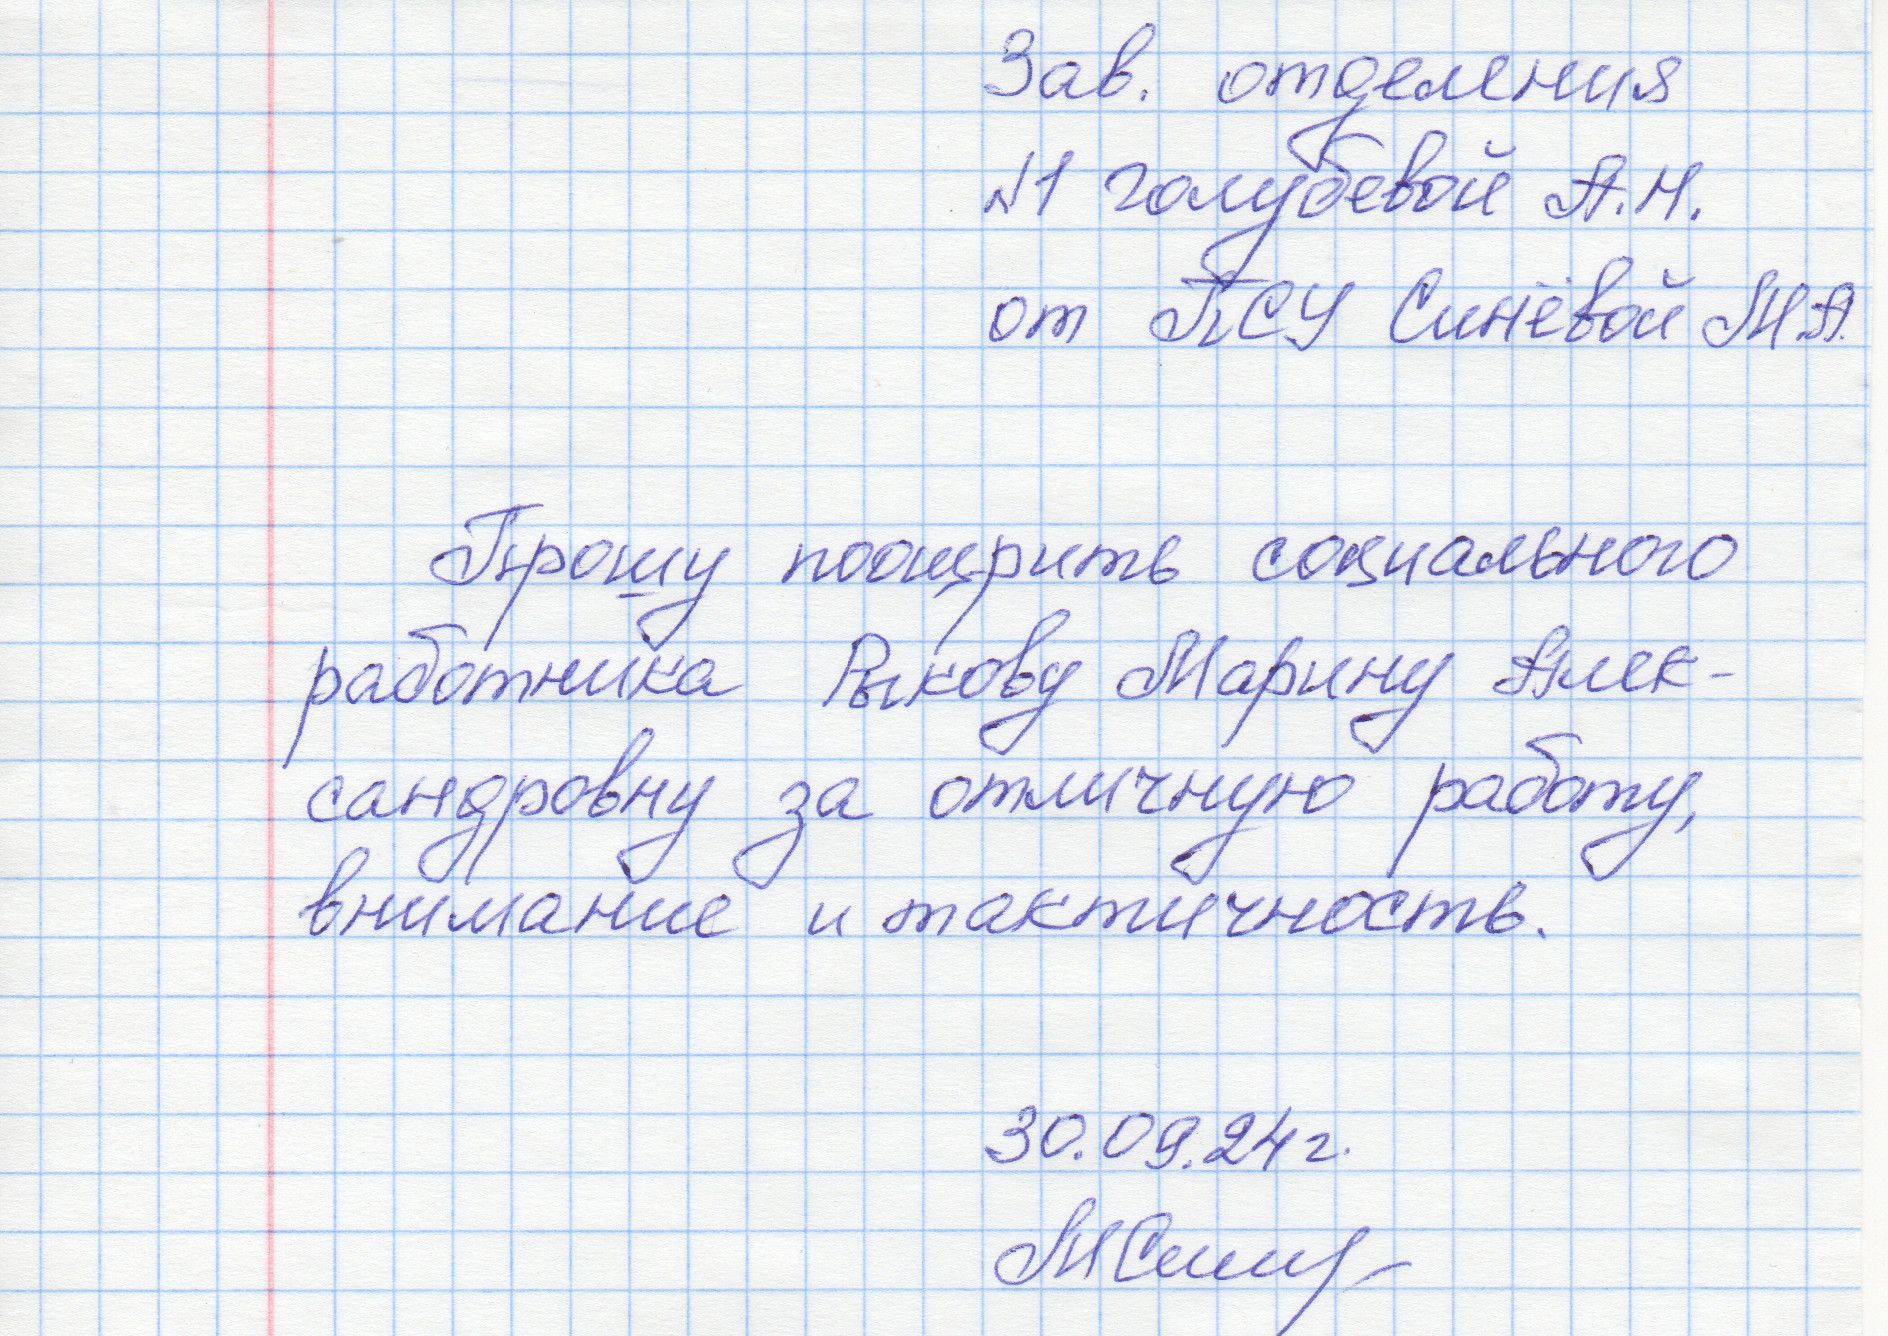 Зав. отделения
№1 Голубевой А.Н.
от ПСУ Синёвой М.А.
Прошу поощрить социального
работника Рыкову Марину Алек-
сандровну за отличную работу,
внимание и тактичность.
30.09.24г.